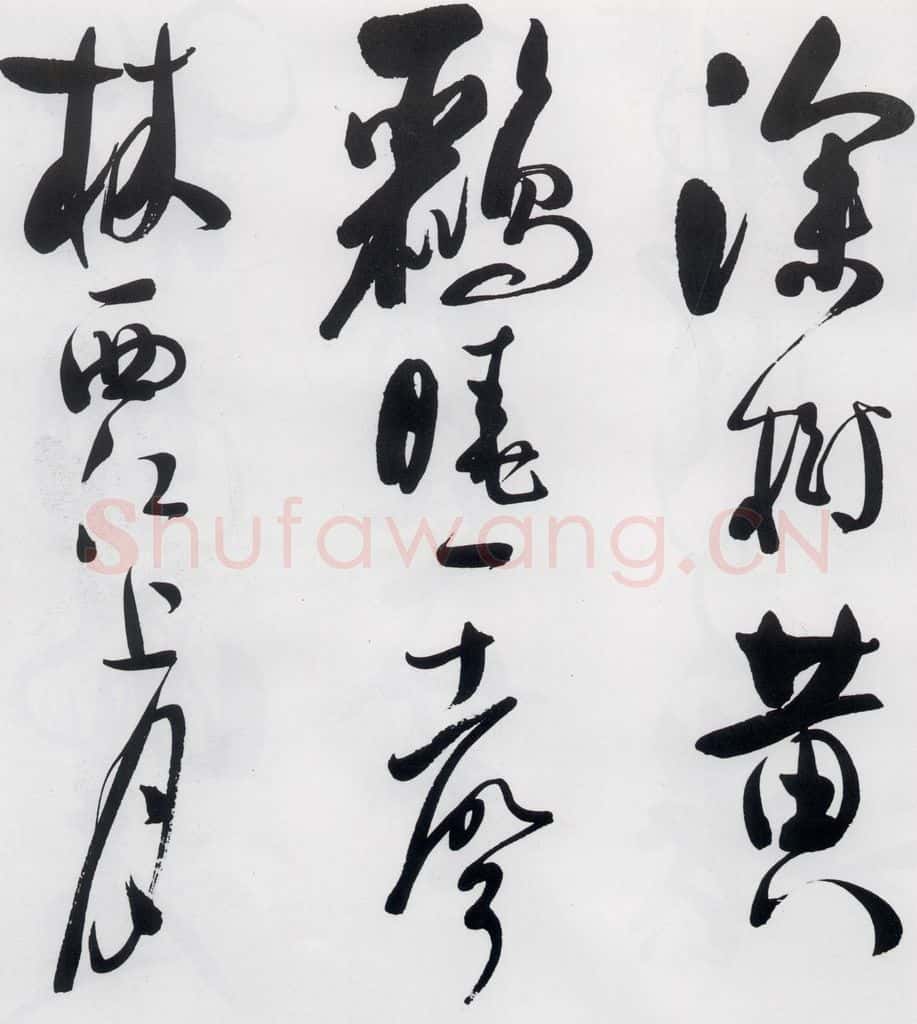 深樹黄
鸝曉一聲
林西江上月
Shufawang.CN